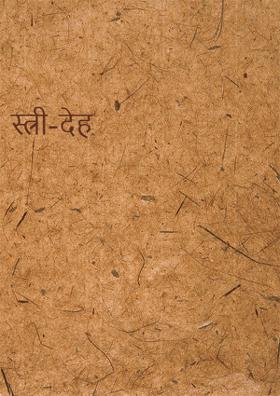 स्त्री-देह